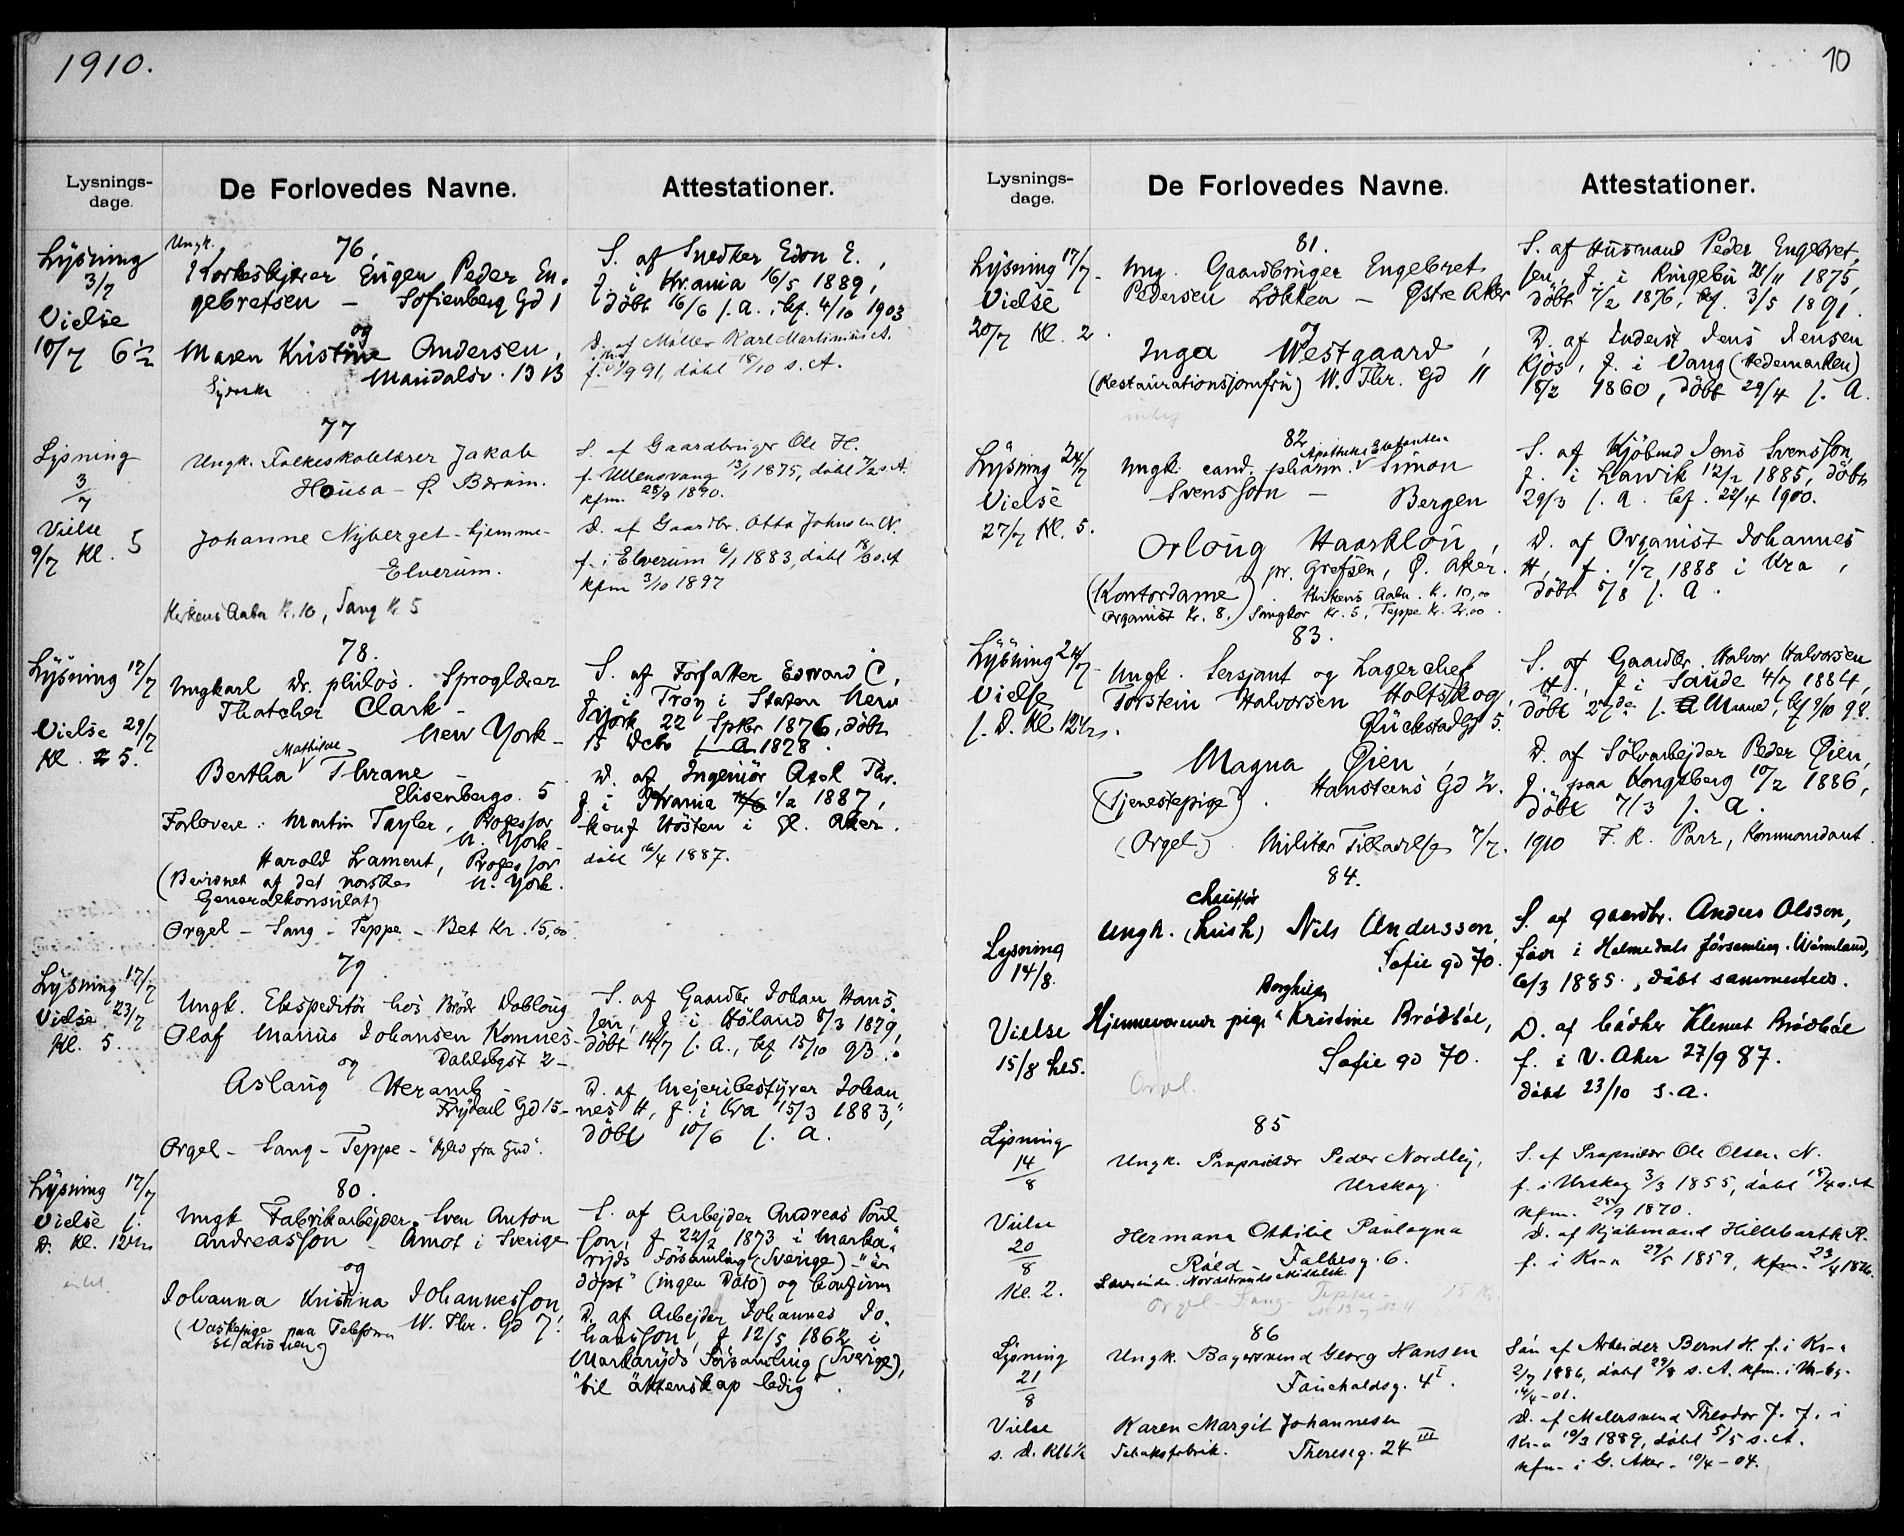 1910.
10
Lysnings-
dage.
De Forlovedes Navne.
Attestationer.
76.
Lysning
3/7
Vielse
10/7 6½
Ungk.
Eugen Peder En-
gebretsen — Sofienberg Gd 1
og
Maren Kristine Andersen,
Maridalsv. 13 B
S. af Snedker Edon E.,
f. i Krania 16/5 1889,
döbt 16/6 s. A., kf. 4/10 1903
D. af Møller Karl Martinius A.
f. 9 91, døbt 18/10 s. A.
77
Lysning
3/7
Vielse
9/7 Kl. 5
Ungk. Folkeskolelærer Jakob
Houba - Ø. Bærum.
Johanne Nyberget - hjemme-
Elverum.
Kirkens Aabn K. 10, Sang K 5
S. af Gaardbruger Ole H.
f. Ullensvang 13/1 1875, døbt 7/2 s. A.
kfm. 28/9 1890.
D. af Gaardbr. Otto Johnsen N.
f. i Elverum 6/1 1883, døbt 18/3 s. A
kfm 3/10 1897
78.
Lysning 17/7
Vielse 29/7
Kl. 5.
Ungkarl Dr. philos. Sproglærer
Thatcher Clark -
New York -
Mathilde
Bertha Thrane -
Elisenbergv. 5
Forlovere: Martin Tayler, Professor
N. York -
Harold Lament, Professor
N. York.
(Bevidnet af det norske
Generalkonsulat)
Orgel - Sang - Teppe - Bet Kr. 15,00
S. af Forfatter Edward C,
f. i Troy i Staten New
York 22 Sptbr 1876, döbt
15 Decbr s. A 1878.
D. af Ingeniör Axel Thr.
f. i Krania 1/2 1887,
konf Hösten i Ø. Aker.
döbt 16/4 1887.
79
Lysning 17/7
Vielse 23/7
Kl. 5.
Ungk. Ekspeditör hos Brødr Dobloug
Olaf Marius Johansen Komnes -
og Dahlsbgst 2 -
Aslaug Heramb -
Frydenl Gd 15 -
Orgel - Sang - Teppe - "Kjærlighed fra Gud".
S. af Gaardbr Johan Hans-
sen, f. i Höland 8/3 1879,
döbt 14/7 s. A., kf 15/10 93.
D. af Mejeribestyrer Johan-
nes H, f. i Kra 15/3 1883,
döbt 10/6 s. A.
80.
Lysning 17/7
Vielse s.
D. Kl. 12½
Ungk Fabrikarbejder Sven Anton
Andreasson - Åmot i Sverige
og
Johanna Kristina Johannesson,
(Vaskepige paa Telefon W. Thr. Gd 7.
stationen)
S. af Arbejder Andreas Poul
son, f 22/2 1873 i Marka-
ryds Församling (Sverige) - "är
döpt" (ingen Dato) og konfirm
D. af Arbejder Johannes Jo-
hansson, f 12/5 1862 i
Markaryds Församling (Sverige),
"til äktenskap ledig".
Lysnings-
dage.
De Forlovedes Navne.
Attestationer.
81.
Lysning 17/7
Vielse
20/7 Kl. 2.
Ung. Gaardbruger Engebret
Pedersen Løkken - Østre Aker
og
Inga Westgaard,
(Restaurationsjomfru) W. Thr. Gd 11
S. af Husmand Peder Engebret-
sen, f. i Ringebu 28/11 1875,
döbt 7/2 1876, kf. 3/5 1891.
D. af Inderst Jens Jensen
Kjos, f. i Vang (Hedemarken)
18/2 1860, döbt 29/4 s. A.
82
Lysning 24/7
Vielse
27/7 Kl. 5.
Ungk. cand. pharm. Simon
Svensson - Bergen
Orloug Haarklou,
pr. Grefsen, Ø. Aker.
(Kontordame) Kirkens Aabn. K. 10,00
Organist Kr. 8. Sangkor Kr. 5, Teppe K. 2.00.
S. af Kjöbmd Jens Svensson
f. i Larvik 12/2 1885, döbt
29/3 s. A. kf. 22/4 1900.
D. af Organist Johannes
H., f. 1/7 1888 i Kra,
döbt 5/8 s. A.
83.
Lysning 24/7
Vielse
s. D. Kl 12½.
Ungk. Sersjant og Lagerchef
Torstein Halvorsen Holtskog
Glückstad Gd 5.
Magna Øien,
(Tjenestepige). Hansteens Gd 2.
(Orgel) Militær Tilladelse 7/7.
S. af Gaardbr. Halvor Halvorsen
H., f. i Saude 4/7 1884,
döbt 27de s. Maaned, kf 9/10 98.
D. af Sölvarbejder Peder Øien,
f. paa Kongsberg 10/2 1886,
döbt 7/3 s. A.
1910 F. R. Parr, Kommandant.
84.
Lysning
14/8.
Vielse
15/8 kl 5.
chauffør
Ungk. (kusk) Nils Andersson,
Sofie gd 70.
Borghild
Hjemmeværende pige Kristine Brödböl,
Sofie gd 70.
Orgel.
S. af gaardbr. Anders Olsson,
född i Holmedals församling. Wärmland,
6/3 1885., døbt sammesteds.
D. af bödker Klemet Brödböl
f. i V. Aker 27/9 87.
döbt 23/10 s. a.
85
Lysning
14/8
Vielse
20/8
Kl. 2.
Ungk. Proprietær Peder Nordby,
Urskog.
Hermana Othilie Paulagna
Röed - Falbesg. 6.
Lærerinde. Nordstrands Middelsk.
Orgel - Sang - Teppe - 15 Kr.
S. af Proprietær Ole Olsen N.
f. i Urskog 3/3 1855, døbt 15/4 s. A
kfm. 25/9 1870.
D. af Kjøbmand Hillebarth R.
f. i Kr-a 29/5 1859, kfm. 23/4 1876.
86
Lysning
21/8
Vielse
s. D. Kl 6½
Ungk. Bagersvend Georg Hansen
Fauchaldsg. 4 I.
Karen Margit Johannesen
Tobaksfabrik. Theresg. 24 III
Søn af Arbeider Bernt H. f. i Kr-a
2/7 1886, døbt 29/8 s. A. kfm. i
14/4 - 01.
D. af Malersvend Theodor J. f. i
Kr-a 10/3 1889, døbt 5/5 s. A.
kfm. i G. Aker. 10/4 - 04.